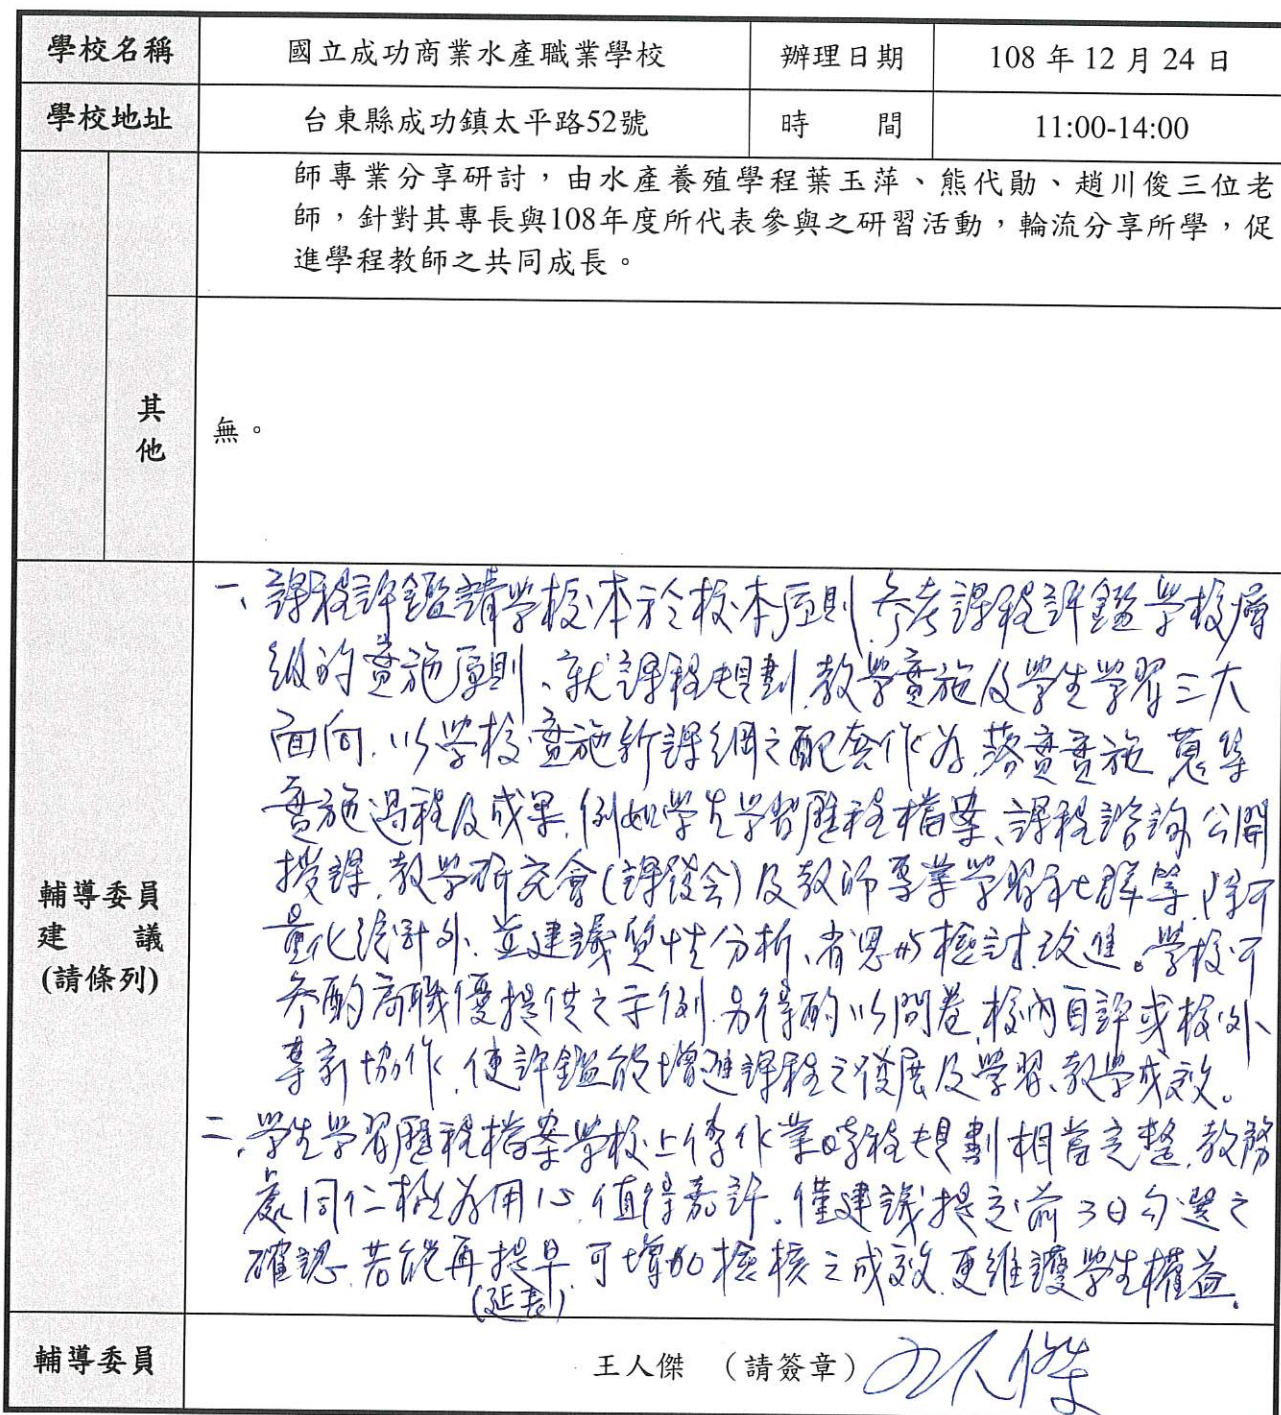 學校名稱 國立成功商業水產職業學校 辦理日期 108 年 12 月 24 日
學校地址 台東縣成功鎮太平路52號 時 間 11:00-14:00
師專業分享研討,由水產養殖學程葉玉萍、熊代勛、趙川俊三位老
師,針對其專長與108年度所代表參與之研習活動,輪流分享所學,促
進學程教師之共同成長。
其他
無。
輔導委員
建 議
(請條列)
一、課程評鑑請学校本於校本原則,參考課程評鑑学校層
級的實施原則、就課程規劃、教學實施及學生學習三大
面向,以学校實施新課綱之配套作為,落實實施,蒐集
實施過程及成果,例如學生学習歷程檔案、課程諮詢、公開
授課、教學研究會(課發会)及教師專業學習社群等,除可
量化統計外,並建議質性分析、省思與檢討改進。學校可
參酌高職優提供之示例,另得酌以問卷、校內自評或校外
專家協作,使評鑑能增進課程之發展及學習、教學成效。
二、學生学習歷程檔案学校上傳作業時程規劃相當完整,教務
處同仁極為用心,值得嘉許。僅建議提交前3日勾選之
確認,若能再提早,可增加檢核之成效,更維護學生權益。
(延長)
輔導委員 王人傑 (請簽章) 王人傑